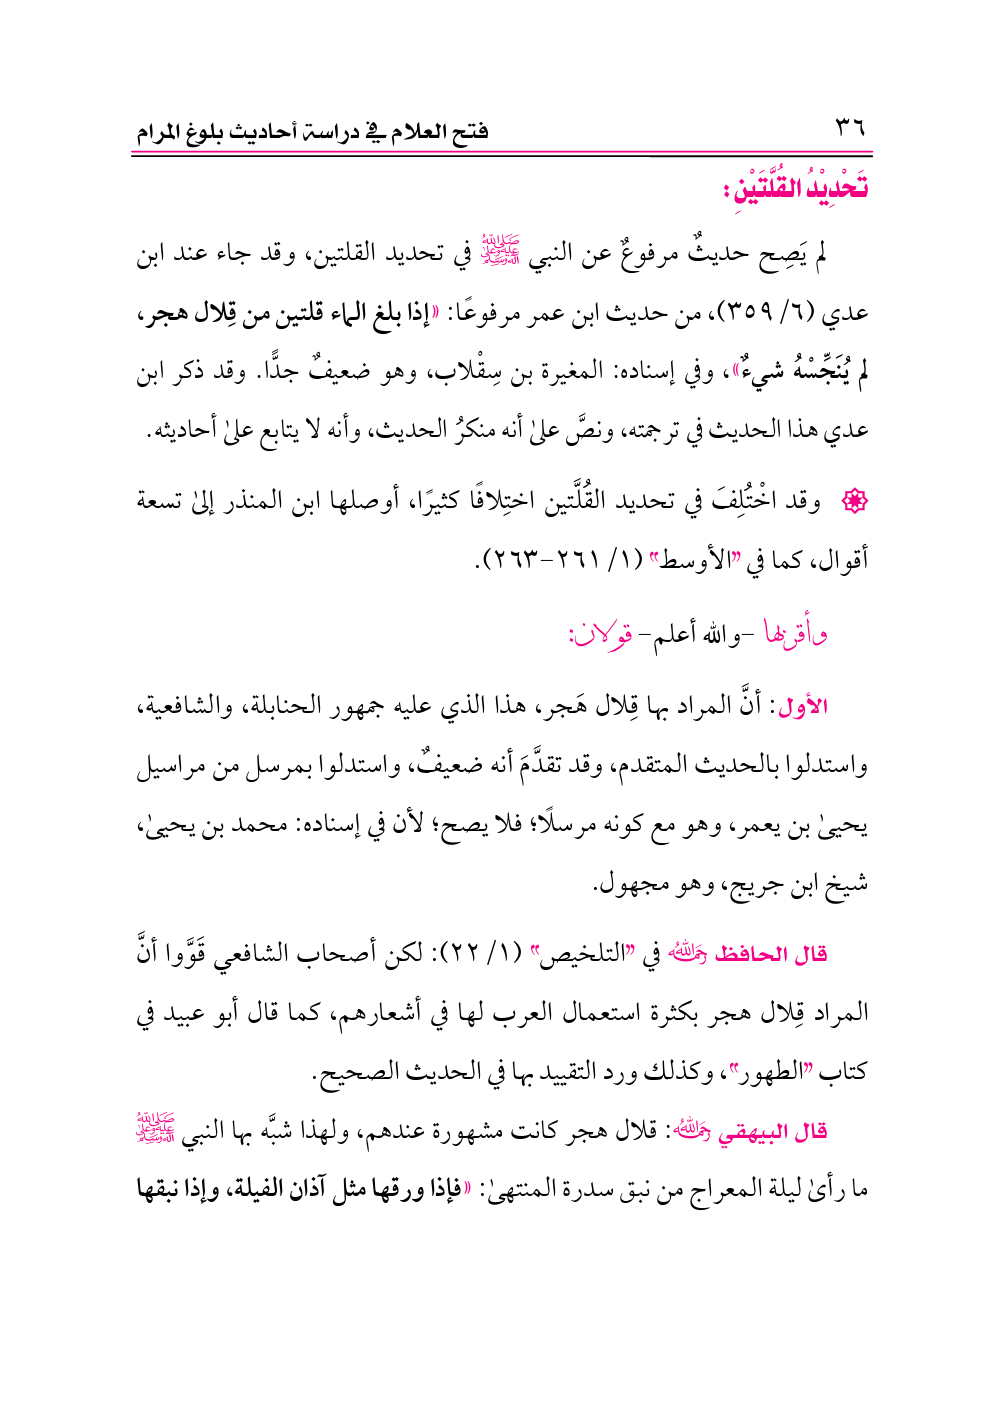 ٣٦
فتح العلام في دراسة أحاديث بلوغ المرام
تَحْدِيْدُ القُلَّتَيْنِ :
لم يَصِح حديثٌ مرفوعٌ عن النبي ﷺ في تحديد القلتين، وقد جاء عند ابن
عدي (٦/ ٣٥٩)، من حديث ابن عمر مرفوعًا: «إذا بلغ الماء قلتين من قِلال هجر،
لم يُنَجِّسْهُ شيءٌ»، وفي إسناده: المغيرة بن سِقْلاب، وهو ضعيفٌ جدًّا. وقد ذكر ابن
عدي هذا الحديث في ترجمته، ونصَّ علىٰ أنه منكرُ الحديث، وأنه لا يتابع علىٰ أحاديثه.
وقد اخْتُلِفَ في تحديد القُلَّتين اختِلافًا كثيرًا، أوصلها ابن المنذر إلىٰ تسعة
أقوال، كما في ”الأوسط“ (١/ ٢٦١-٢٦٣).
وأقربها -والله أعلم- قولان:
الأول: أنَّ المراد بها قِلال هَجر، هذا الذي عليه جمهور الحنابلة، والشافعية،
واستدلوا بالحديث المتقدم، وقد تقدَّمَ أنه ضعيفٌ، واستدلوا بمرسل من مراسيل
يحيىٰ بن يعمر، وهو مع كونه مرسلًا؛ فلا يصح؛ لأن في إسناده: محمد بن يحيىٰ،
شيخ ابن جريج، وهو مجهول.
قال الحافظ رحمه الله في ”التلخيص“ (١/ ٢٢): لكن أصحاب الشافعي قَوَّوا أنَّ
المراد قِلال هجر بكثرة استعمال العرب لها في أشعارهم، كما قال أبو عبيد في
كتاب ”الطهور“، وكذلك ورد التقييد بها في الحديث الصحيح.
قال البيهقي رحمه الله: قلال هجر كانت مشهورة عندهم، ولهذا شبَّه بها النبي ﷺ
ما رأىٰ ليلة المعراج من نبق سدرة المنتهىٰ: «فإذا ورقها مثل آذان الفيلة، وإذا نبقها